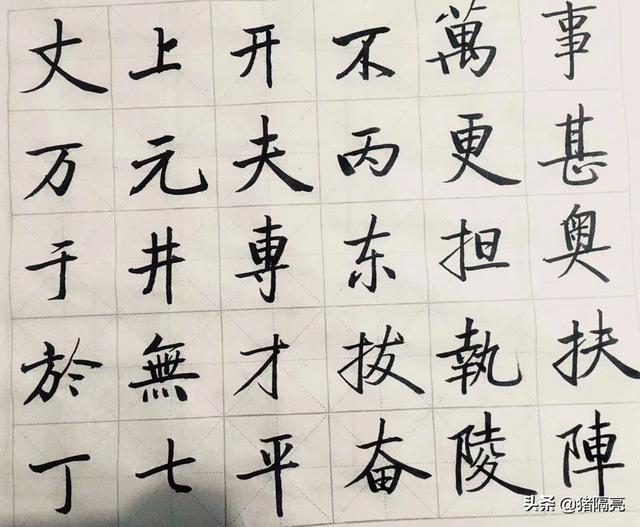 丈上开不萬事
万元夫丙更甚
于井専东担奥
於無才拔執扶
丁七平奋陵陣
头条 @猪隔亮